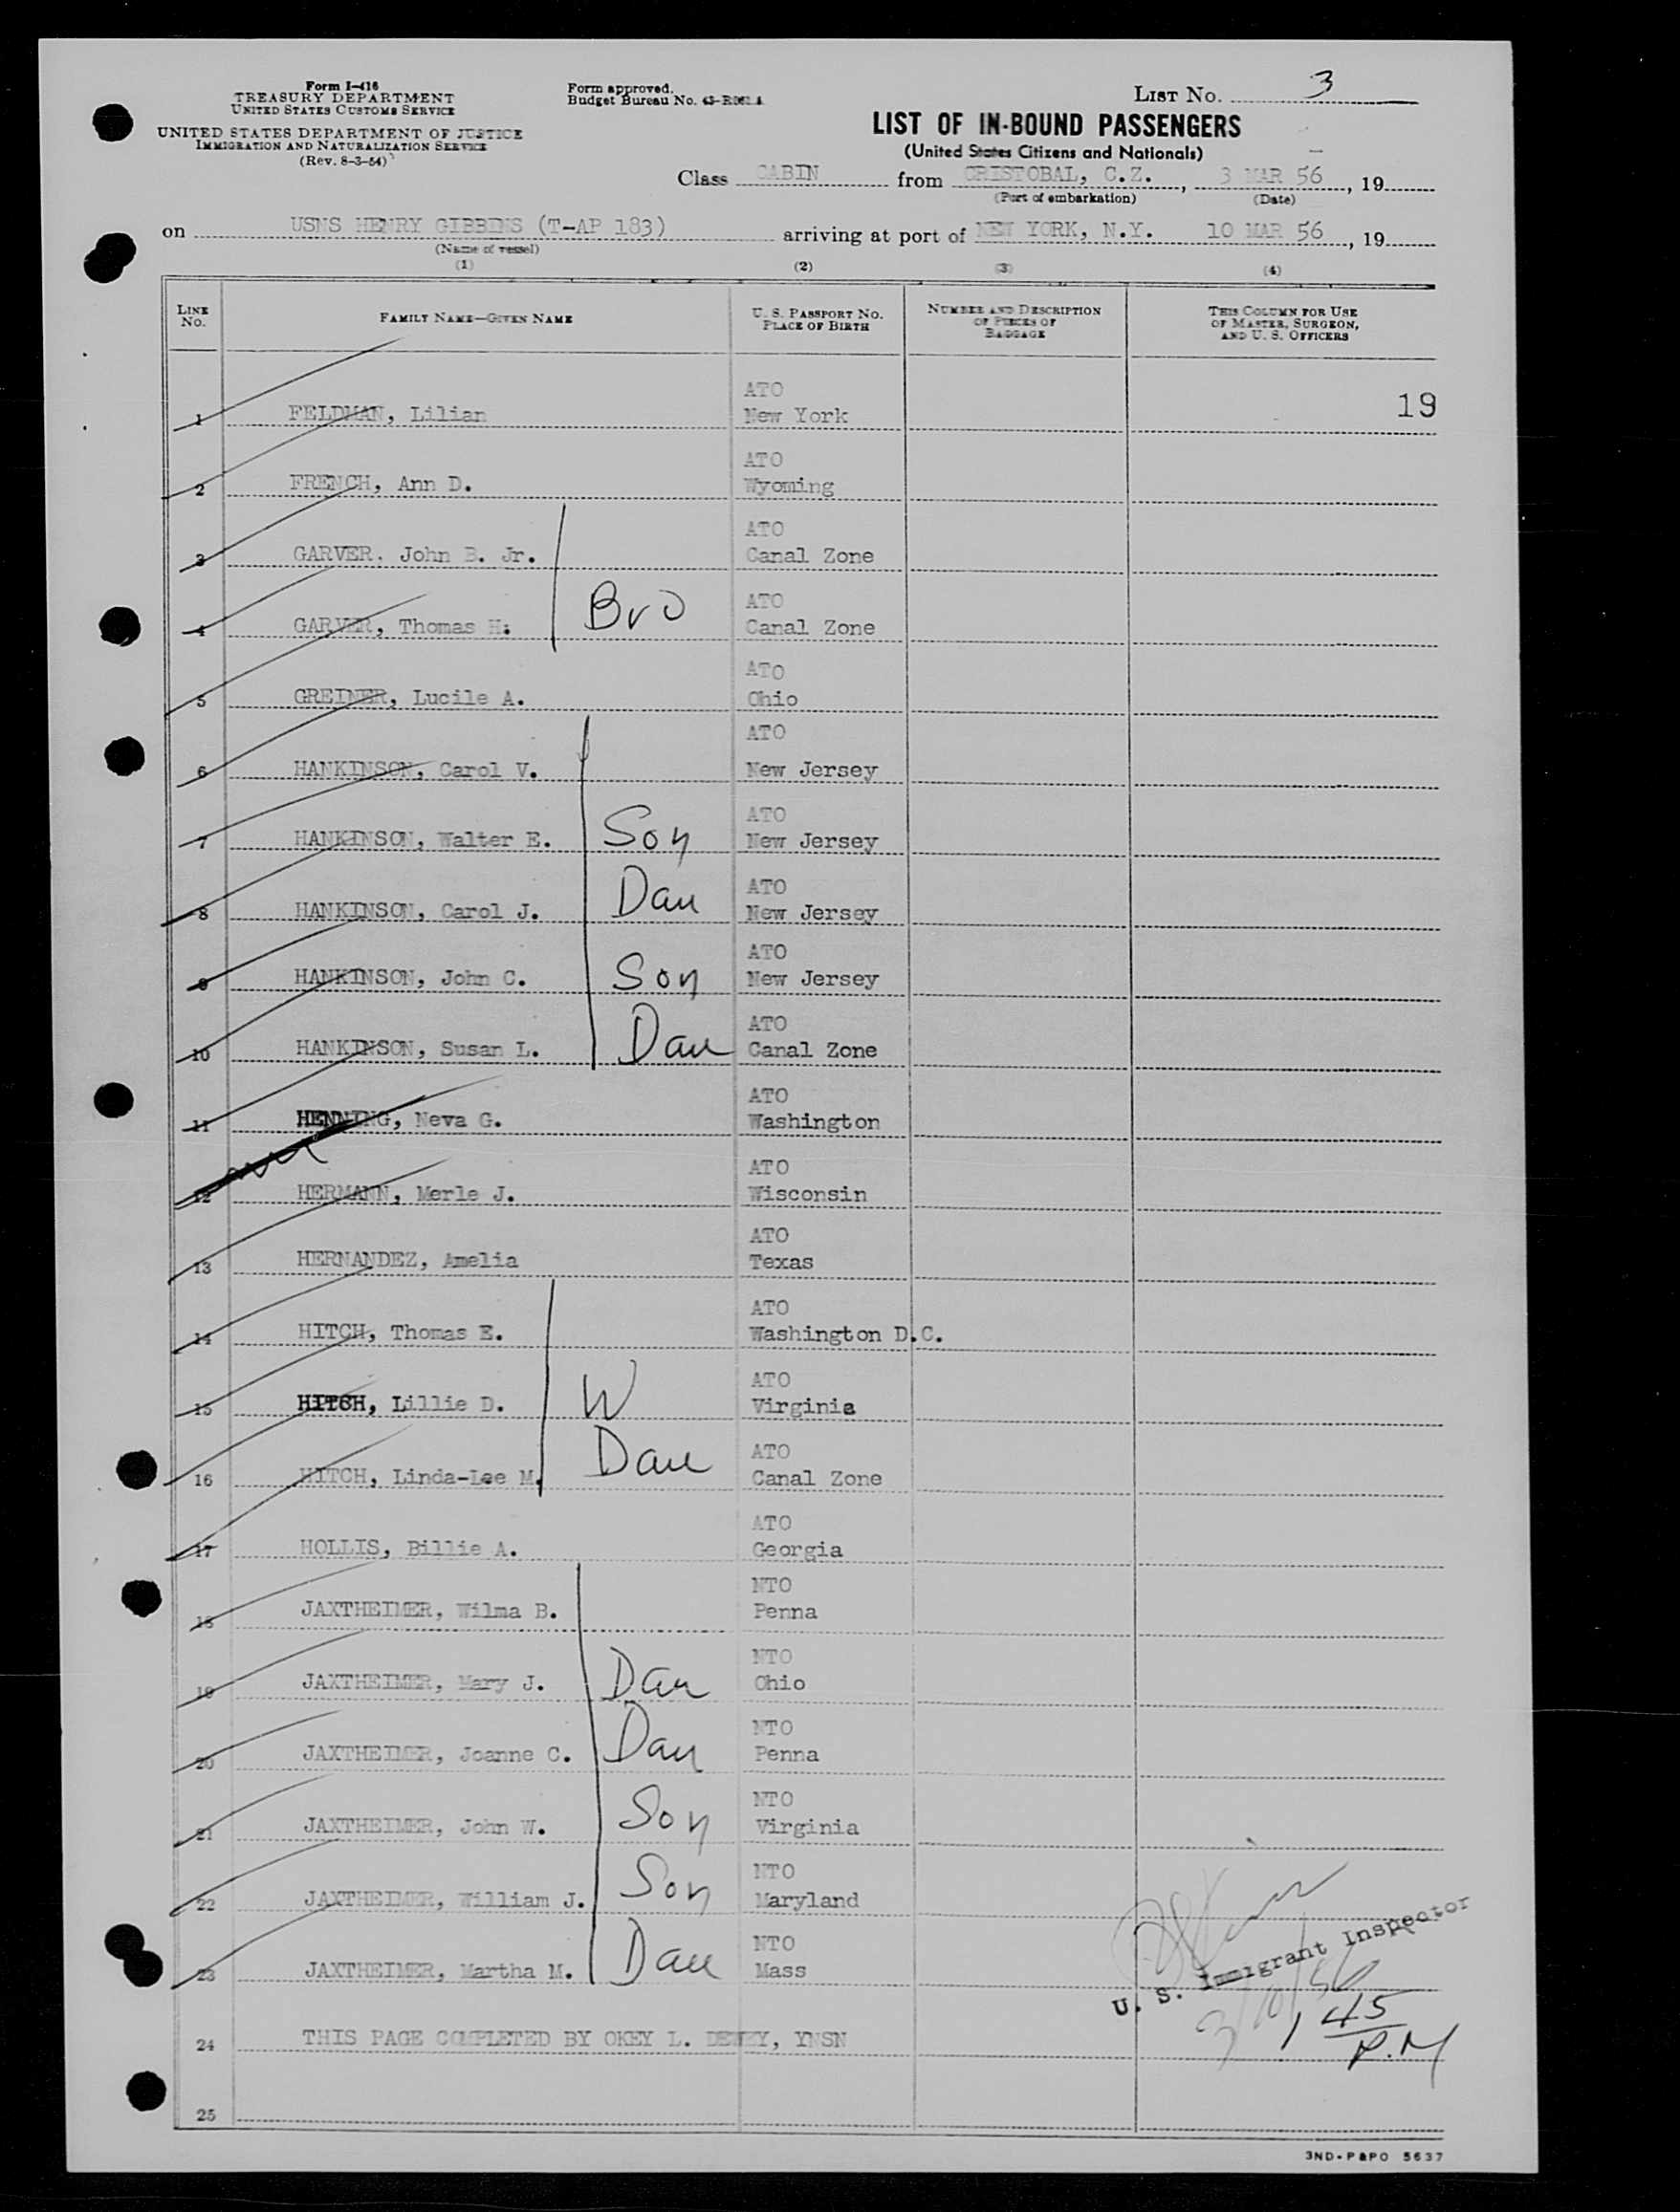 Form I-416
TREASURY DEPARTMENT
UNITED STATES CUSTOMS SERVICE
UNITED STATES DEPARTMENT OF JUSTICE
IMMIGRATION AND NATURALIZATION SERVICE
(Rev. 8-3-54)
Form approved.
Budget Bureau No.
LIST No. 3
LIST OF IN-BOUND PASSENGERS
(United States Citizens and Nationals)
Class CABIN from CRISTOBAL, C.Z., 3 MAR 56, 19
(Port of embarkation) (Date)
on USNS HENRY GIBBINS (T-AP 183) arriving at port of NEW YORK, N.Y. 10 MAR 56, 19
(Name of vessel)
(1) (2) (3) (4)
LINE No. FAMILY NAME—GIVEN NAME U. S. PASSPORT NO. PLACE OF BIRTH NUMBER AND DESCRIPTION OF PIECES OF BAGGAGE THIS COLUMN FOR USE OF MASTER, SURGEON, AND U. S. OFFICERS
ATO
1 FELDMAN, Lilian New York 19
ATO
2 FRENCH, Ann D. Wyoming
ATO
3 GARVER. John B. Jr. Canal Zone
ATO
4 GARVER, Thomas H. Bro Canal Zone
ATO
5 GREINER, Lucile A. Ohio
ATO
6 HANKINSON, Carol V. New Jersey
ATO
7 HANKINSON, Walter E. Son New Jersey
ATO
8 HANKINSON, Carol J. Dau New Jersey
ATO
9 HANKINSON, John C. Son New Jersey
ATO
10 HANKINSON, Susan L. Dau Canal Zone
ATO
11 HENNING, Neva G. Washington
ATO
12 HERMANN, Merle J. Wisconsin
ATO
13 HERNANDEZ, Amelia Texas
ATO
14 HITCH, Thomas E. Washington D.C.
ATO
15 HITCH, Lillie D. W Virginia
ATO
16 HITCH, Linda-Lee M. Dau Canal Zone
ATO
17 HOLLIS, Billie A. Georgia
NTO
18 JAXTHEIMER, Wilma B. Penna
NTO
19 JAXTHEIMER, Mary J. Dau Ohio
NTO
20 JAXTHEIMER, Joanne C. Dau Penna
NTO
21 JAXTHEIMER, John W. Son Virginia
NTO
22 JAXTHEIMER, William J. Son Maryland
NTO
23 JAXTHEIMER, Martha M. Dau Mass
U. S. Immigrant Inspector
3/10/56
1 45
P.M
24 THIS PAGE COMPLETED BY OKEY L. DEWEY, YNSN
25
3ND-P&PO 5637